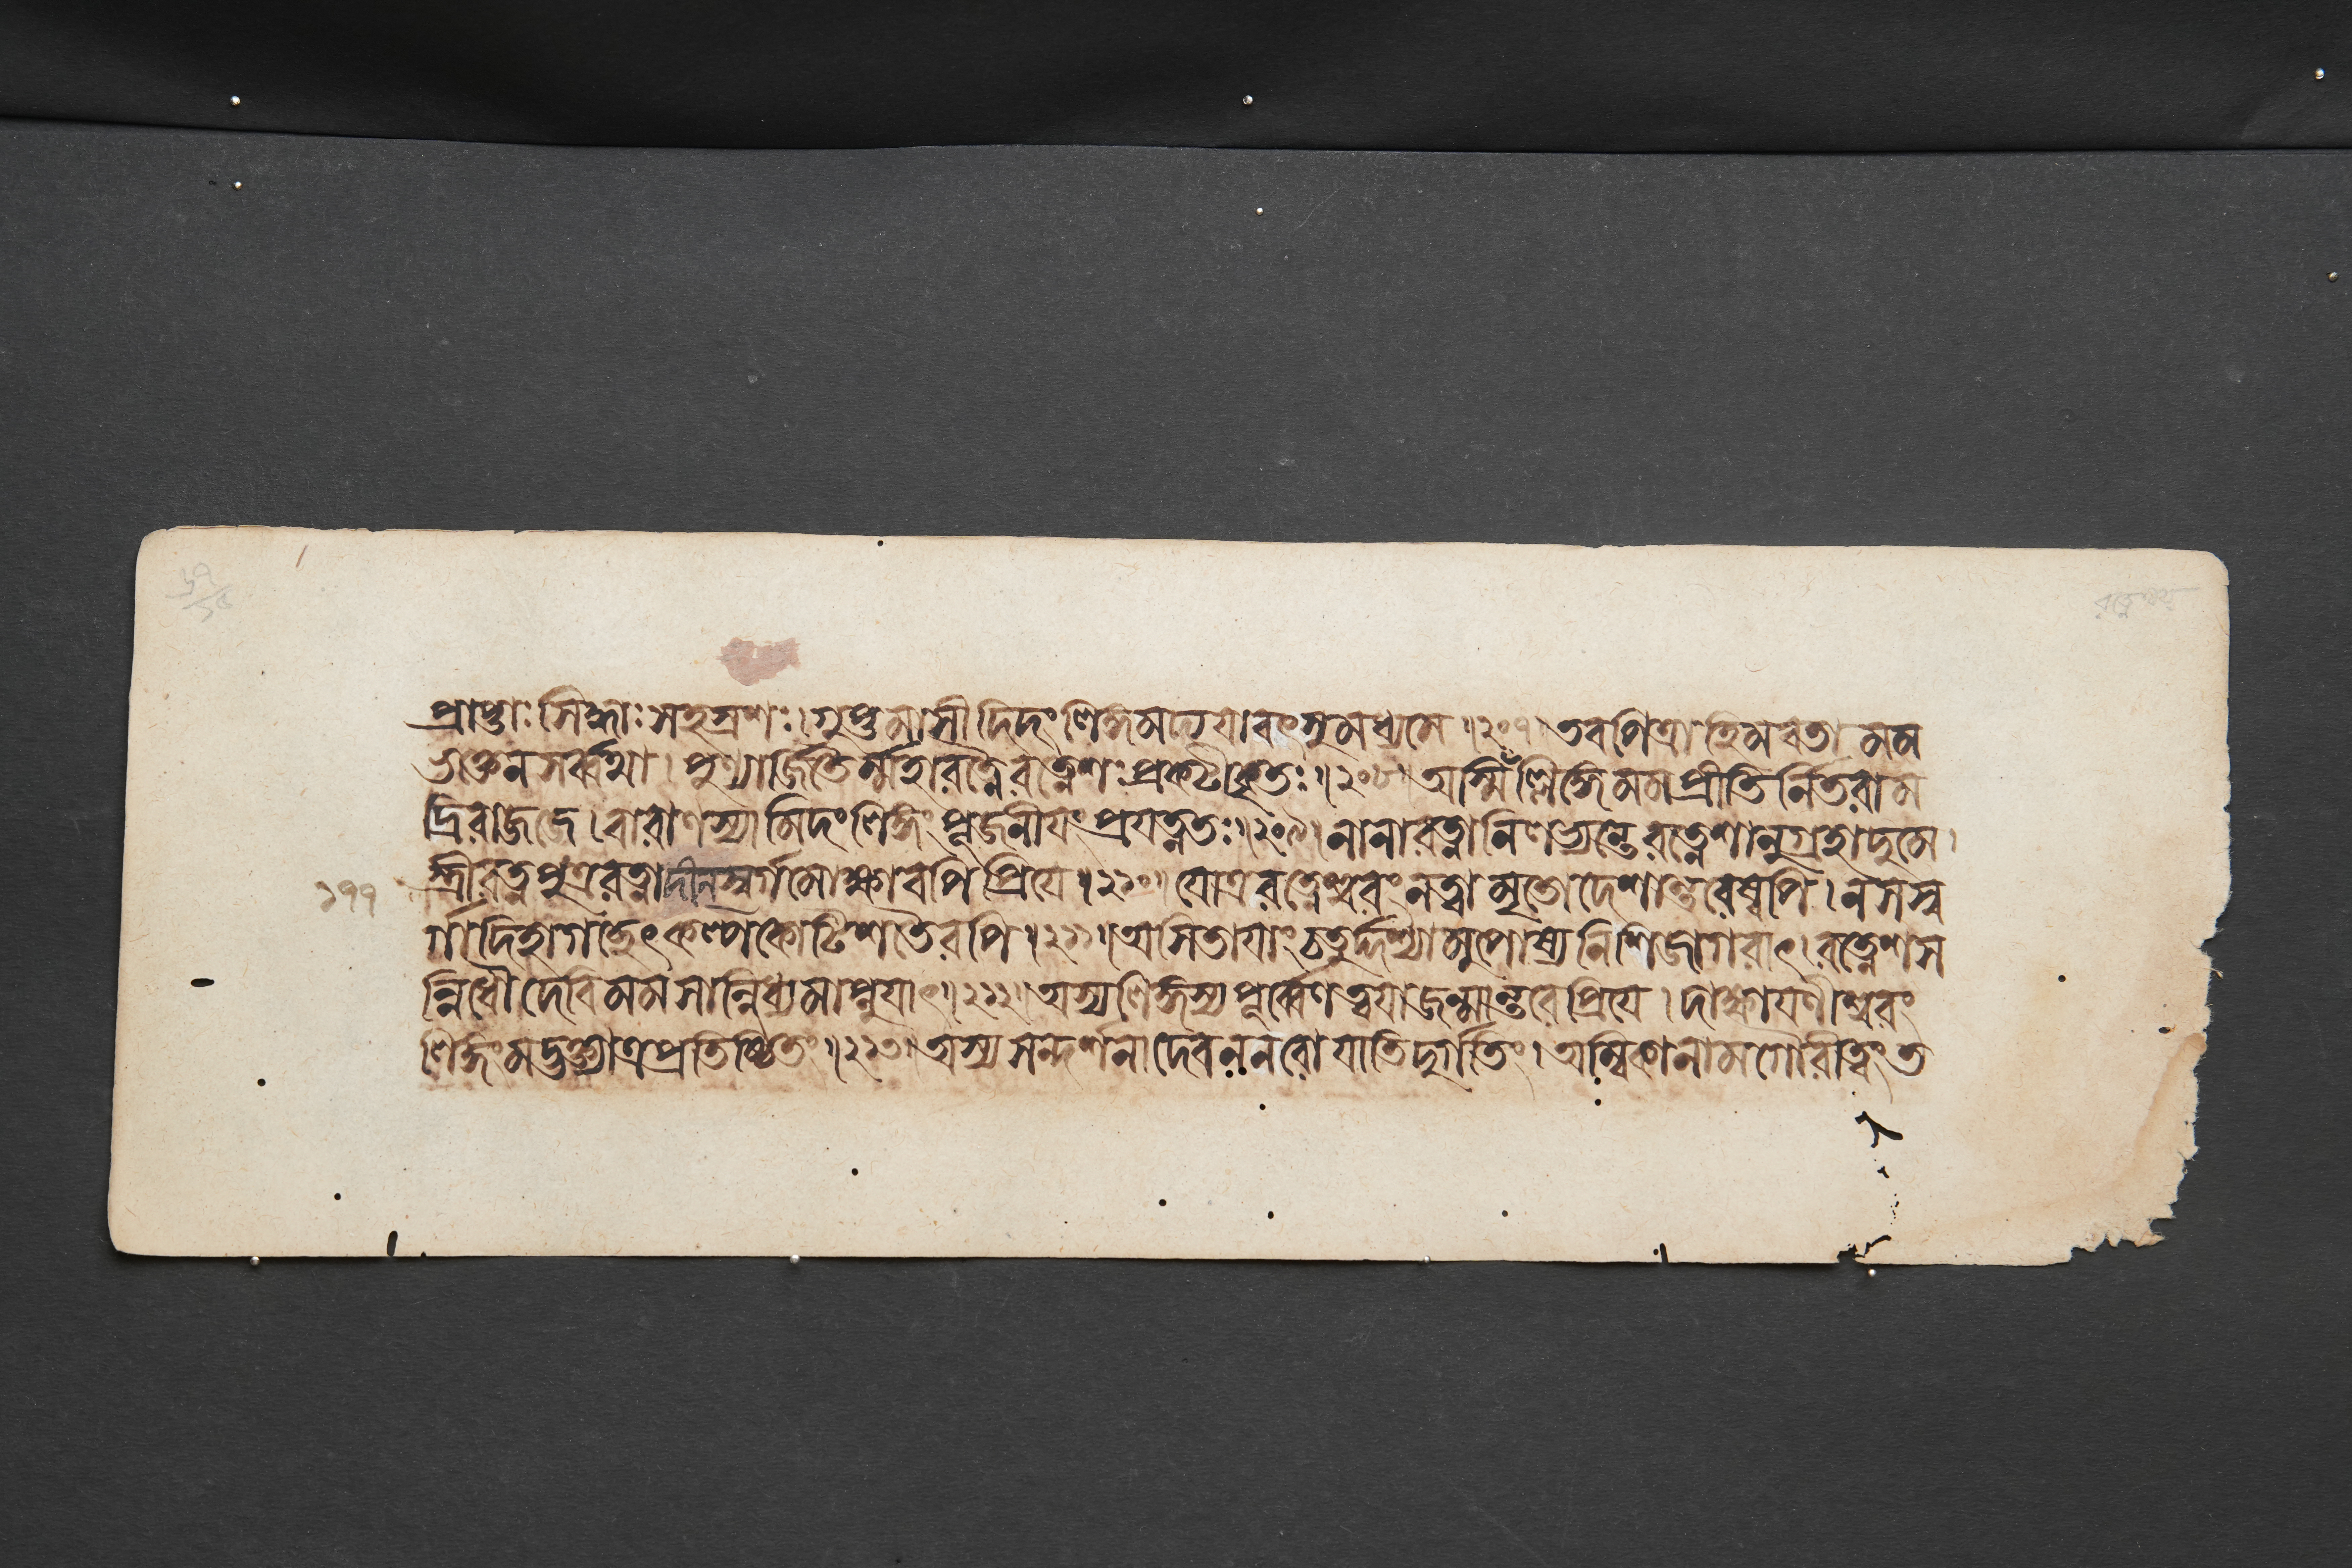 প্রাপ্তাঃ সিদ্ধাঃ সহস্রশঃ। গুপ্তমাসীদিদং লিঙ্গমদ্য যাবৎ সুমধ্যমে॥২০৭॥ তব পিত্রা হিমবতা মম
ভক্তেন সর্ব্বথা। পুণ্যার্জিতৈর্ম্মহারত্নৈ রত্নেশঃ প্রকটীকৃতঃ॥২০৮॥ অস্মিঁল্লিঙ্গে মম প্রীতির্নিতরাম
দ্রিরাজজে। বারাণস্যামিদং লিঙ্গং পূজনীযং প্রযত্নতঃ॥২০৯॥ নানারত্নানি লভ্যন্তে রত্নেশানুগ্রহাদুমে।
স্ত্রীরত্নপুত্ররত্নাদীনস্বর্গমোক্ষাবপি প্রিযে॥২১০॥ যোত্র রত্নেশ্বরং নত্বা মৃতো দেশান্তরেষ্বপি। ন স স্ব
১৭৭
র্গাদিহাগচ্ছেৎ কল্পকোটিশতৈরপি॥২১১॥ অসিতাযাং চতুর্দ্দশ্যামুপোষ্য নিশি জাগরাৎ। রত্নেশস
ন্নিধৌ দেবি মম সান্নিধ্যমাপ্নুযাৎ॥২১২॥ অস্য লিঙ্গস্য পূর্ব্বেণ ত্বযা জন্মান্তরে প্রিযে। দাক্ষাযণীশ্বরং
লিঙ্গং মদ্ভক্ত্যাত্র প্রতিষ্ঠিতং॥২১৩॥ অস্য সন্দর্শনাদেব ন নরো যাতি দুর্গতিং। অম্বিকা নাম গৌরী ত্বং ত